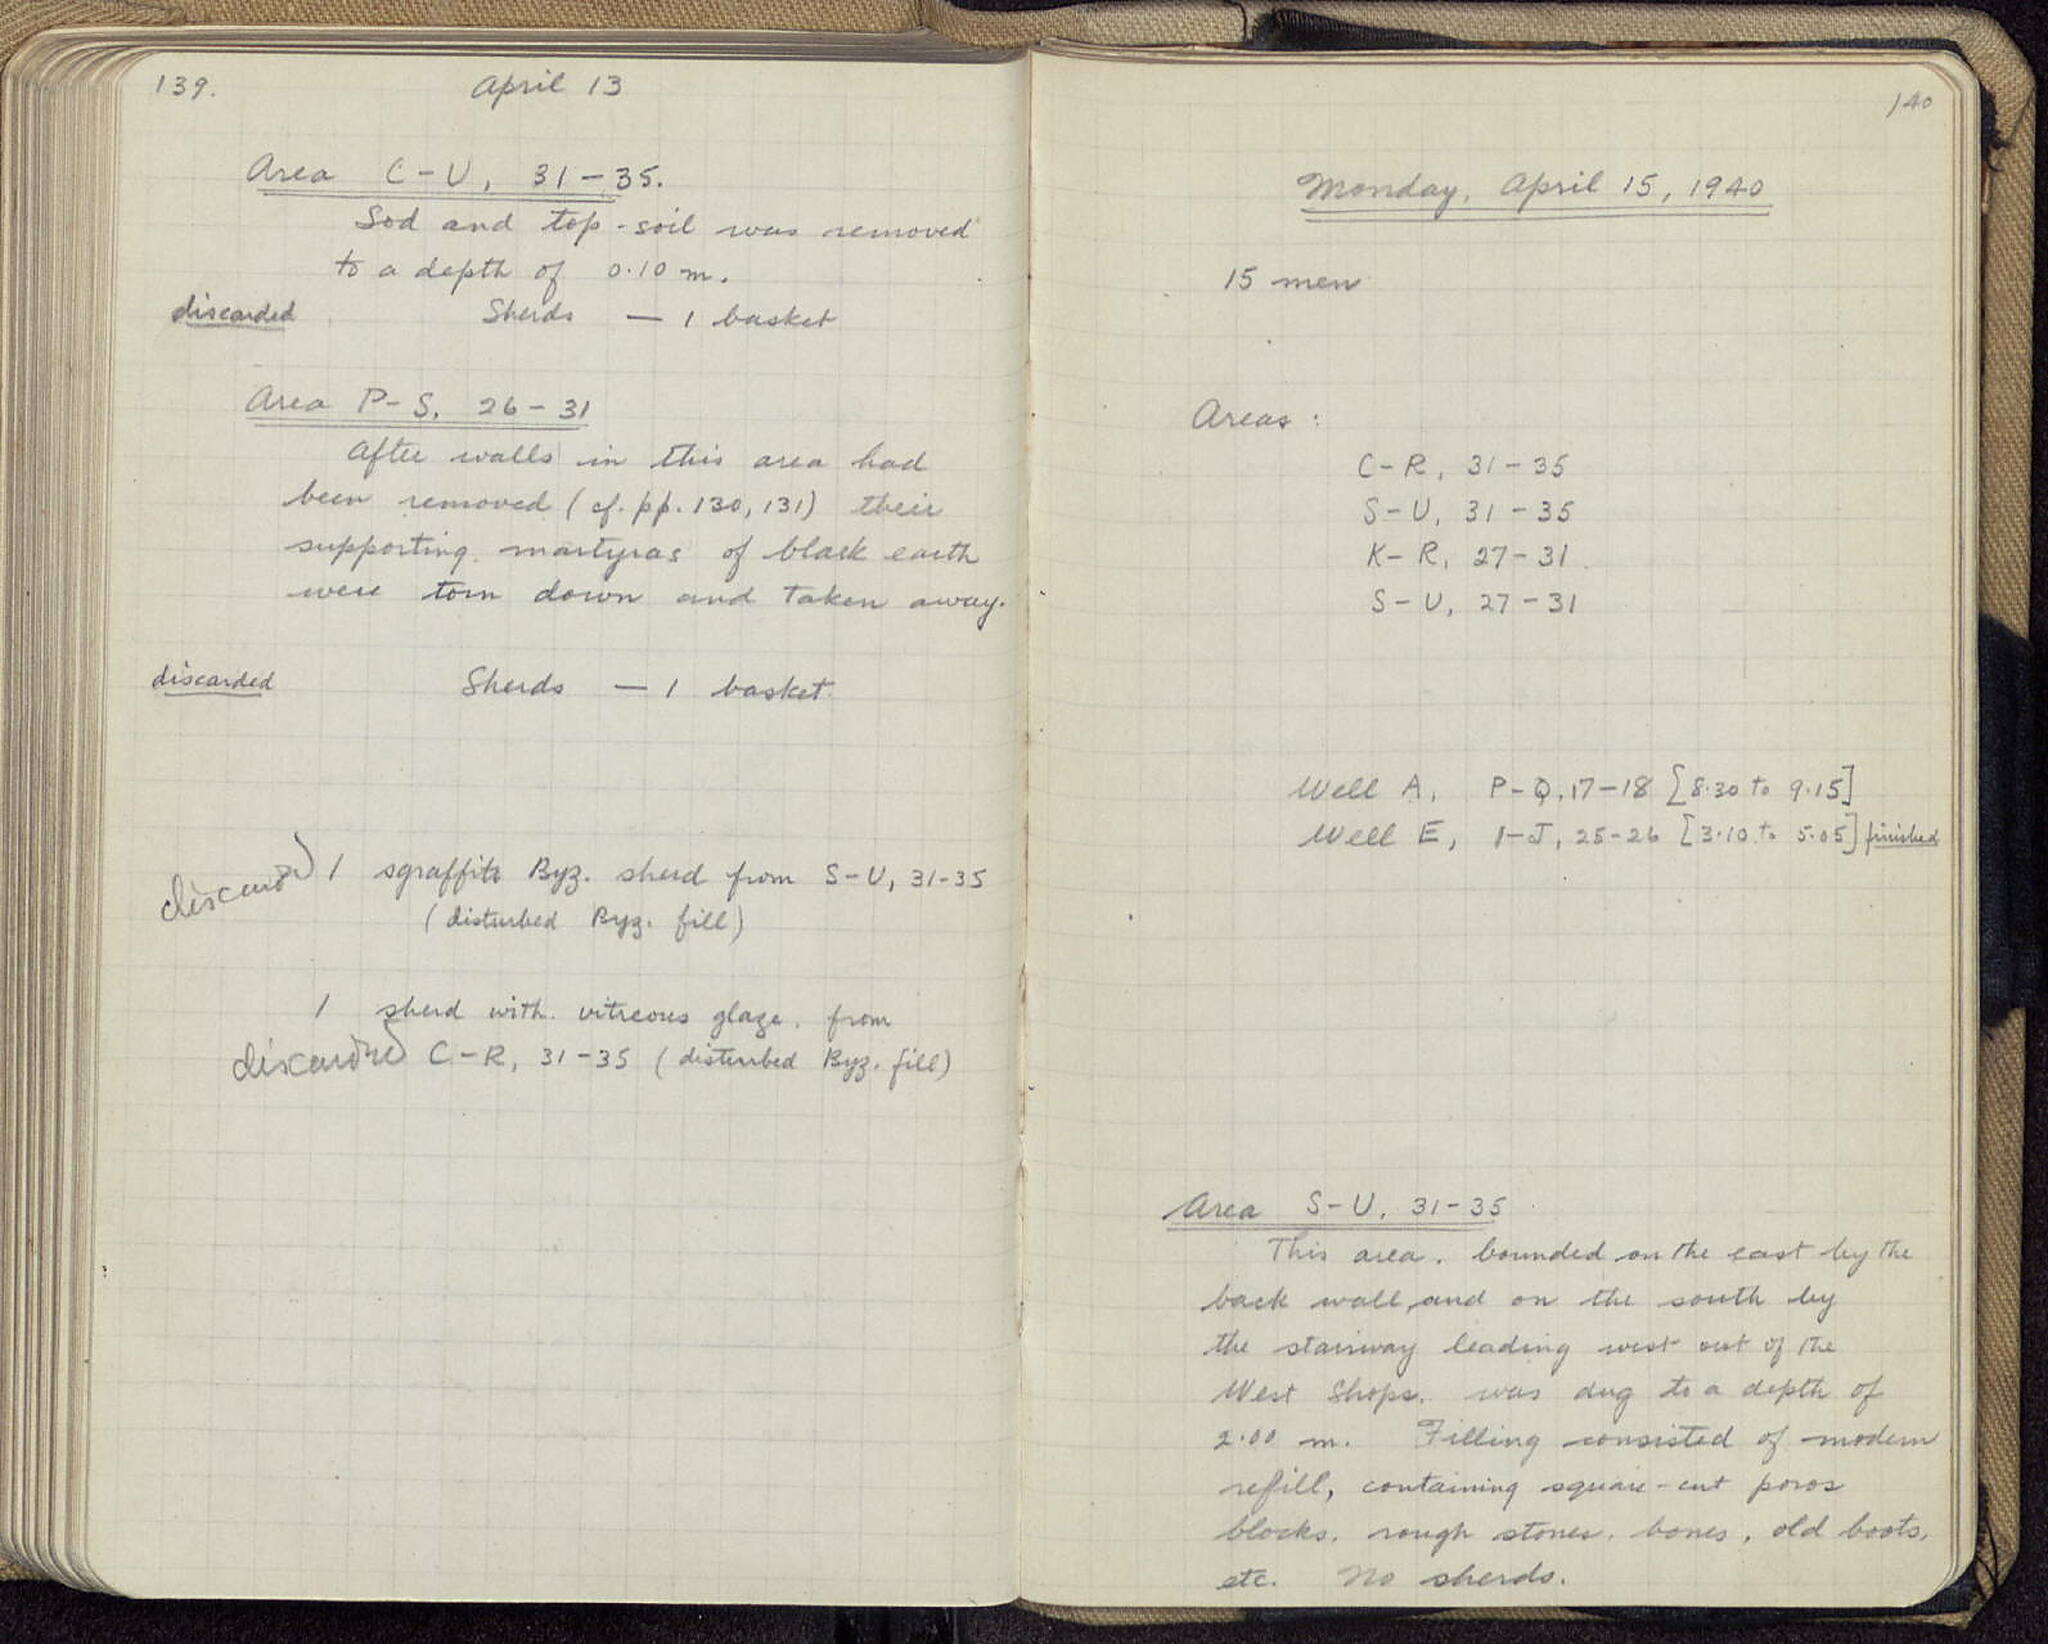 139.
April 13
Area C-U, 31-35.
Sod and top-soil was removed
to a depth of 0.10 m.
discarded Sherds — 1 basket
Area P-S, 26-31
After walls in this area had
been removed (cf. pp. 130, 131) their
supporting martyras of black earth
were torn down and taken away.
discarded Sherds — 1 basket.
discard 1 sgraffito Byz. sherd from S-U, 31-35
(disturbed Byz. fill)
1 sherd with vitreous glaze, from
discarded C-R, 31-35 (disturbed Byz. fill)
140
Monday, April 15, 1940
15 men
Areas:
C-R, 31-35
S-U, 31-35
K-R, 27-31.
S-U, 27-31
Well A, P-Q, 17-18 [8.30 to 9.15]
Well E, I-J, 25-26 [3.10 to 5.05] finished
Area S-U, 31-35
This area, bounded on the east by the
back wall, and on the south by
the stairway leading west out of the
West Shops, was dug to a depth of
2.00 m. Filling consisted of modern
refill, containing square-cut poros
blocks, rough stones, bones, old boots,
etc. No sherds.